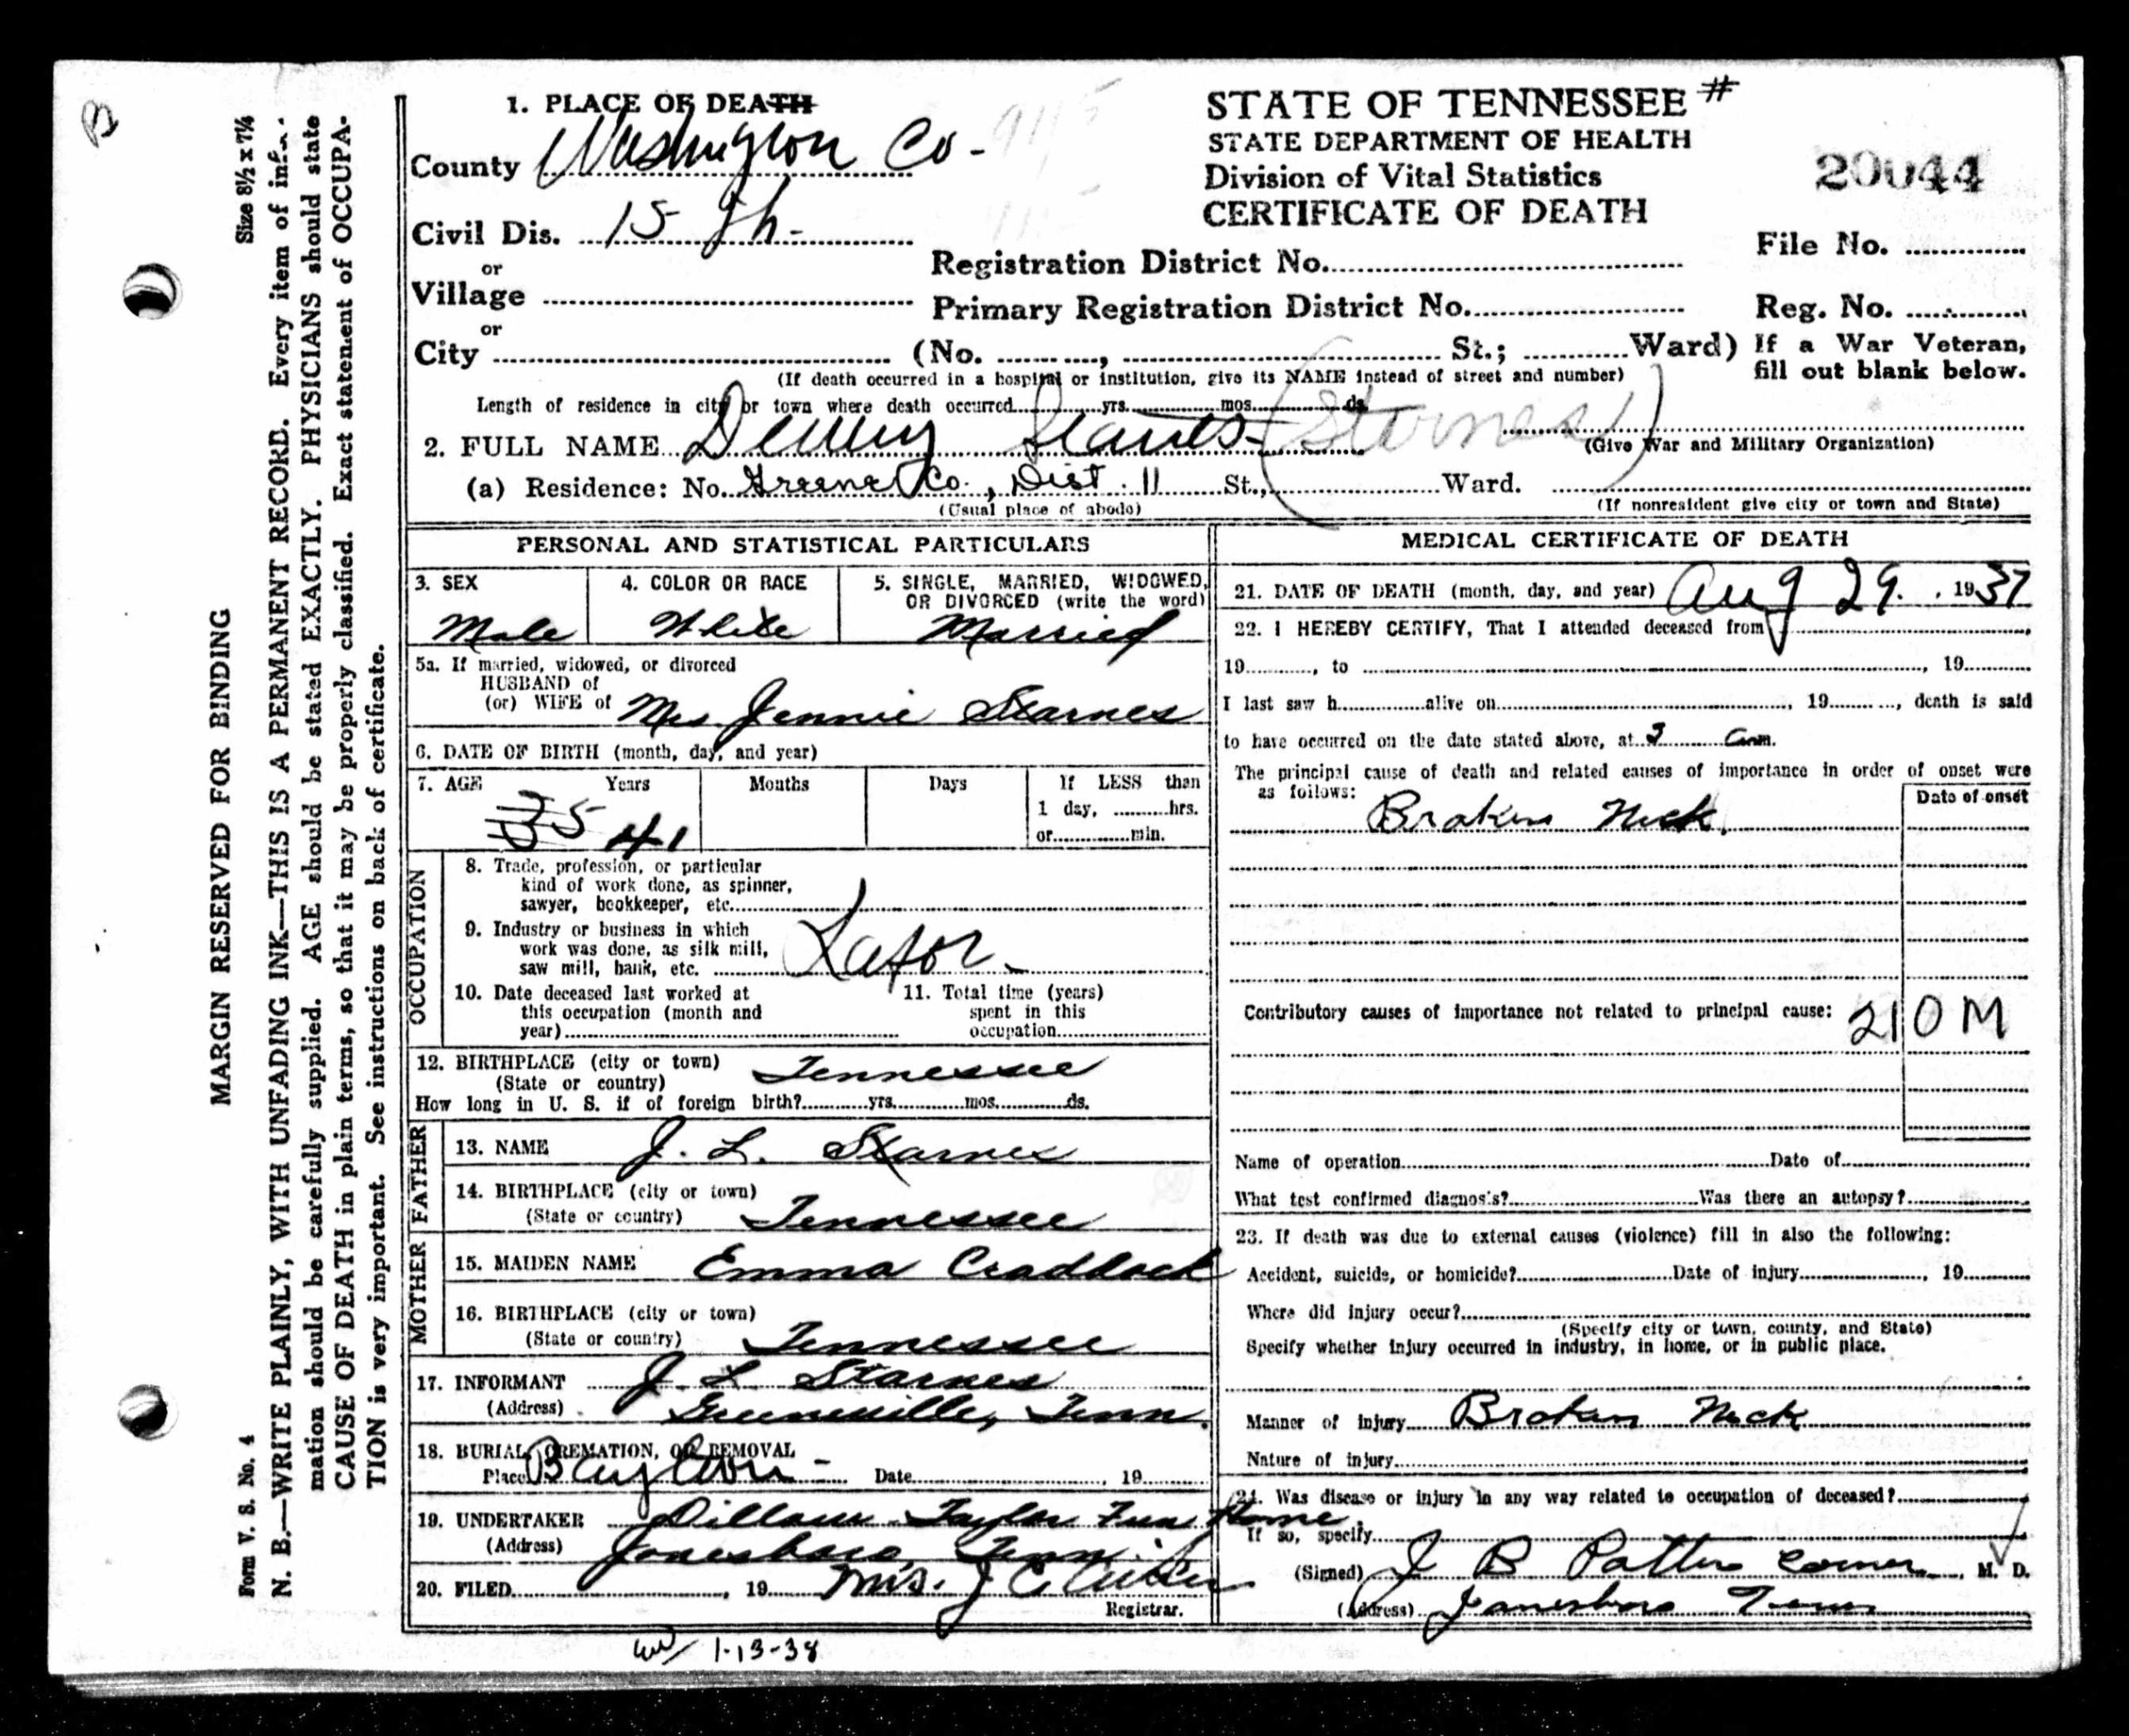 B
MARGIN RESERVED FOR BINDING
Form V. S. No. 4 Size 8½ x 7¼
N. B.—WRITE PLAINLY, WITH UNFADING INK—THIS IS A PERMANENT RECORD. Every item of infor-
mation should be carefully supplied. AGE should be stated EXACTLY. PHYSICIANS should state
CAUSE OF DEATH in plain terms, so that it may be properly classified. Exact statement of OCCUPA-
TION is very important. See instructions on back of certificate.
1. PLACE OF DEATH
County Washington Co -
Civil Dis. 15 th -
or
Village
or
City (No. , St.; Ward)
(If death occurred in a hospital or institution, give its NAME instead of street and number)
STATE OF TENNESSEE #
STATE DEPARTMENT OF HEALTH
Division of Vital Statistics
CERTIFICATE OF DEATH
20044
Registration District No.
Primary Registration District No.
File No.
Reg. No.
If a War Veteran,
fill out blank below.
Length of residence in city or town where death occurred yrs. mos. ds.
2. FULL NAME Starnes (Starnes)
(Give War and Military Organization)
(a) Residence: No. Greene Co., Dist. 11 St., Ward.
(Usual place of abode)
(If nonresident give city or town and State)
PERSONAL AND STATISTICAL PARTICULARS
3. SEX
Male
4. COLOR OR RACE
White
5. SINGLE, MARRIED, WIDOWED,
OR DIVORCED (write the word)
Married
5a. If married, widowed, or divorced
HUSBAND of
(or) WIFE of Mrs. Jennie Starnes
6. DATE OF BIRTH (month, day, and year)
7. AGE Years Months Days If LESS than
1 day, hrs.
or min.
35 41
OCCUPATION
8. Trade, profession, or particular
kind of work done, as spinner,
sawyer, bookkeeper, etc.
9. Industry or business in which
work was done, as silk mill,
saw mill, bank, etc. Labor -
10. Date deceased last worked at
this occupation (month and
year)
11. Total time (years)
spent in this
occupation
12. BIRTHPLACE (city or town)
(State or country) Tennessee
How long in U. S. if of foreign birth? yrs. mos. ds.
FATHER
13. NAME J. L. Starnes
14. BIRTHPLACE (city or town)
(State or country) Tennessee
MOTHER
15. MAIDEN NAME Emma Craddock
16. BIRTHPLACE (city or town)
(State or country) Tennessee
17. INFORMANT J. L Starnes
(Address) Greeneville, Tenn.
18. BURIAL, CREMATION, OR REMOVAL
Place Bayleton - Date , 19
19. UNDERTAKER Dillow Taylor Fun Home
(Address) Jonesboro, Tenn.
20. FILED , 19 Mrs. J C
Registrar.
1-13-38
MEDICAL CERTIFICATE OF DEATH
21. DATE OF DEATH (month, day, and year) Aug 29. , 1937
22. I HEREBY CERTIFY, That I attended deceased from
19 , to , 19
I last saw h alive on , 19 , death is said
to have occurred on the date stated above, at 3 a m.
The principal cause of death and related causes of importance in order of onset were
as follows:
Date of onset
Broken Neck.
Contributory causes of importance not related to principal cause: 210M
Name of operation Date of
What test confirmed diagnosis? Was there an autopsy?
23. If death was due to external causes (violence) fill in also the following:
Accident, suicide, or homicide? Date of injury , 19
Where did injury occur?
(Specify city or town, county, and State)
Specify whether injury occurred in industry, in home, or in public place.
Manner of injury Broken Neck
Nature of injury
24. Was disease or injury in any way related to occupation of deceased?
If so, specify
(Signed) J B Patton Corner , M. D.
(Address) Jonesboro Tenn